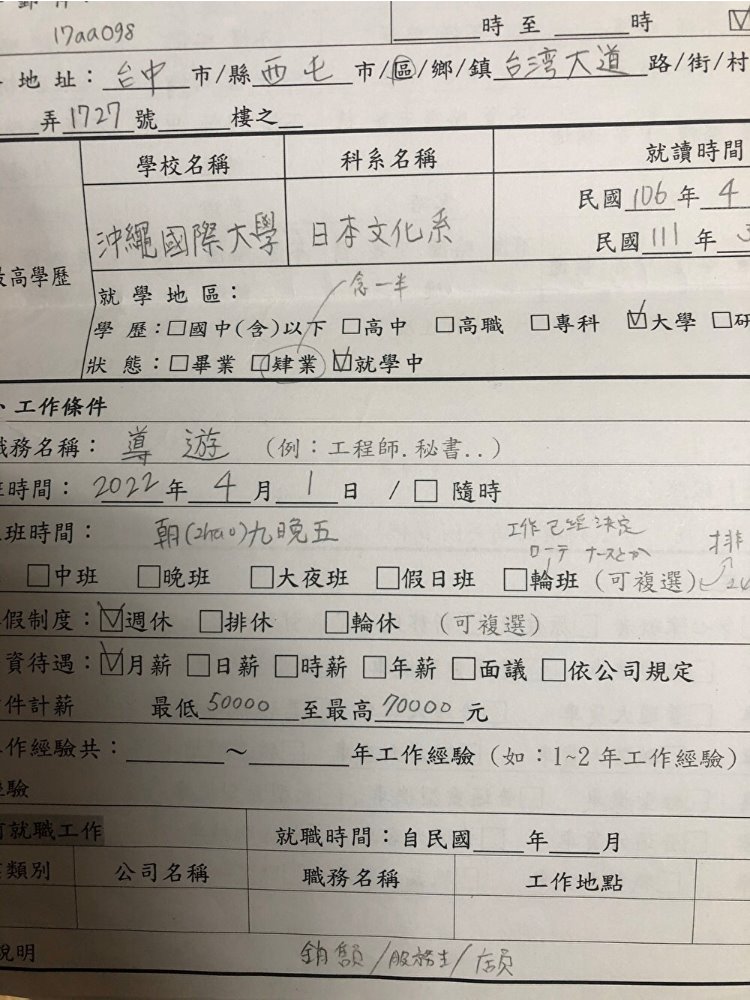 17aa098
時 至 時
地 址：台中 市/縣 西屯 市/區/鄉/鎮 台湾大道 路/街/村
弄 1727 號 樓之
學校名稱 科系名稱 就讀時間
民國 106 年 4
沖繩國際大學 日本文化系
民國 111 年 3
最高學歷
就 學 地 區：
念一半
學 歷：□國中(含)以下 □高中 □高職 □專科 ☑大學 □研
狀 態：□畢業 □肄業 ☑就學中
、工作條件
職務名稱： 導 遊 （例：工程師.秘書..）
班時間： 2022 年 4 月 1 日 / □ 隨時
班時間： 朝(zhao)九晚五
工作已經決定
排
□中班 □晚班 □大夜班 □假日班 □輪班 (可複選)
假制度：☑週休 □排休 □輪休 （可複選）
資待遇：☑月薪 □日薪 □時薪 □年薪 □面議 □依公司規定
件計薪 最低 50000 至最高 70000 元
工作經驗共： ～ 年工作經驗（如：1~2 年工作經驗）
驗
前就職工作 就職時間：自民國 年 月
類別 公司名稱 職務名稱 工作地點
說明 銷售員/服務生/店員